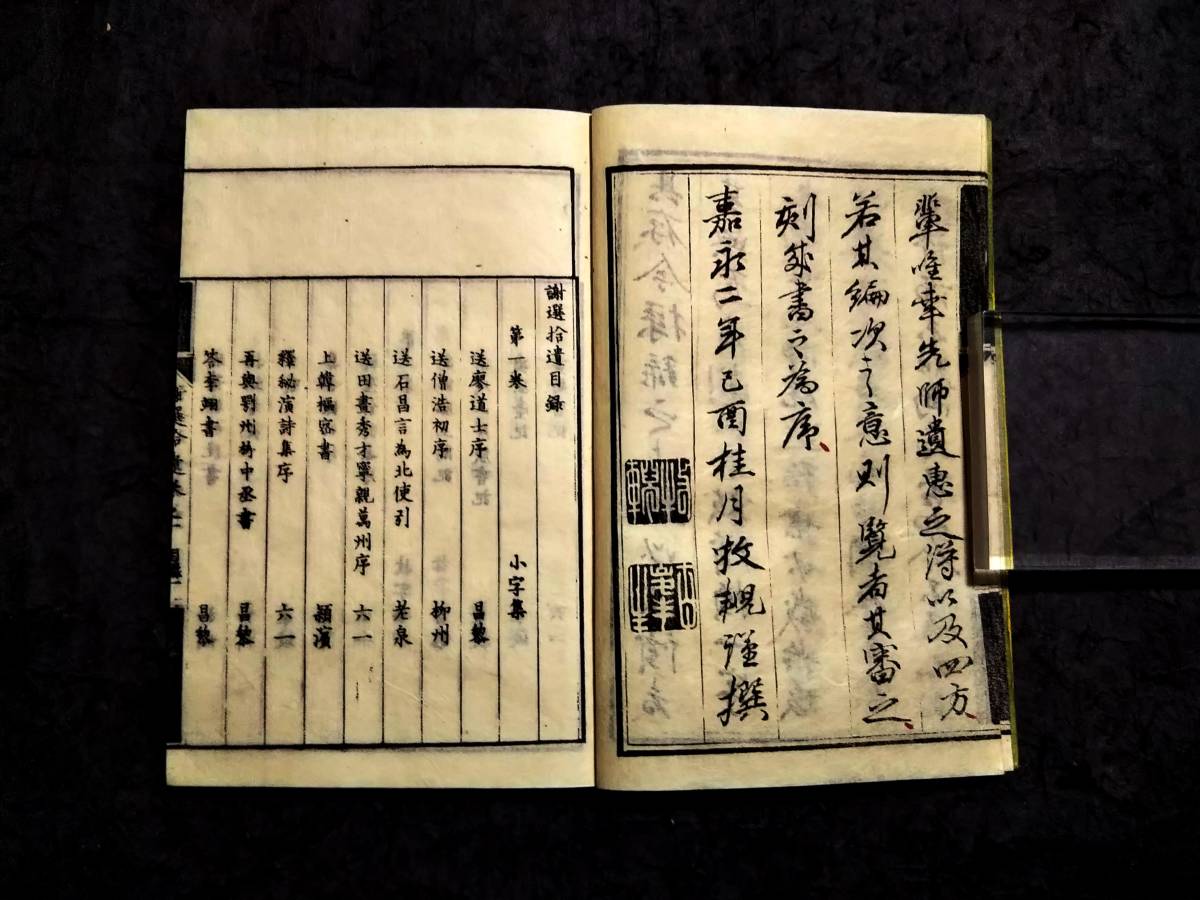 輩唯幸先師遺惠之得以及四方
若其編次之意則覽者其審之
刻成書之為序
嘉永二年己酉桂月牧輗謹撰
謝選拾遺目錄
第一卷 小字集
送廖道士序 昌黎
送僧浩初序 柳州
送石昌言為北使引 老泉
送田畫秀才寧親萬州序 六一
上韓樞密書 潁濱
釋秘演詩集序 六一
再與鄂州柳中丞書 昌黎
答李翊書 昌黎